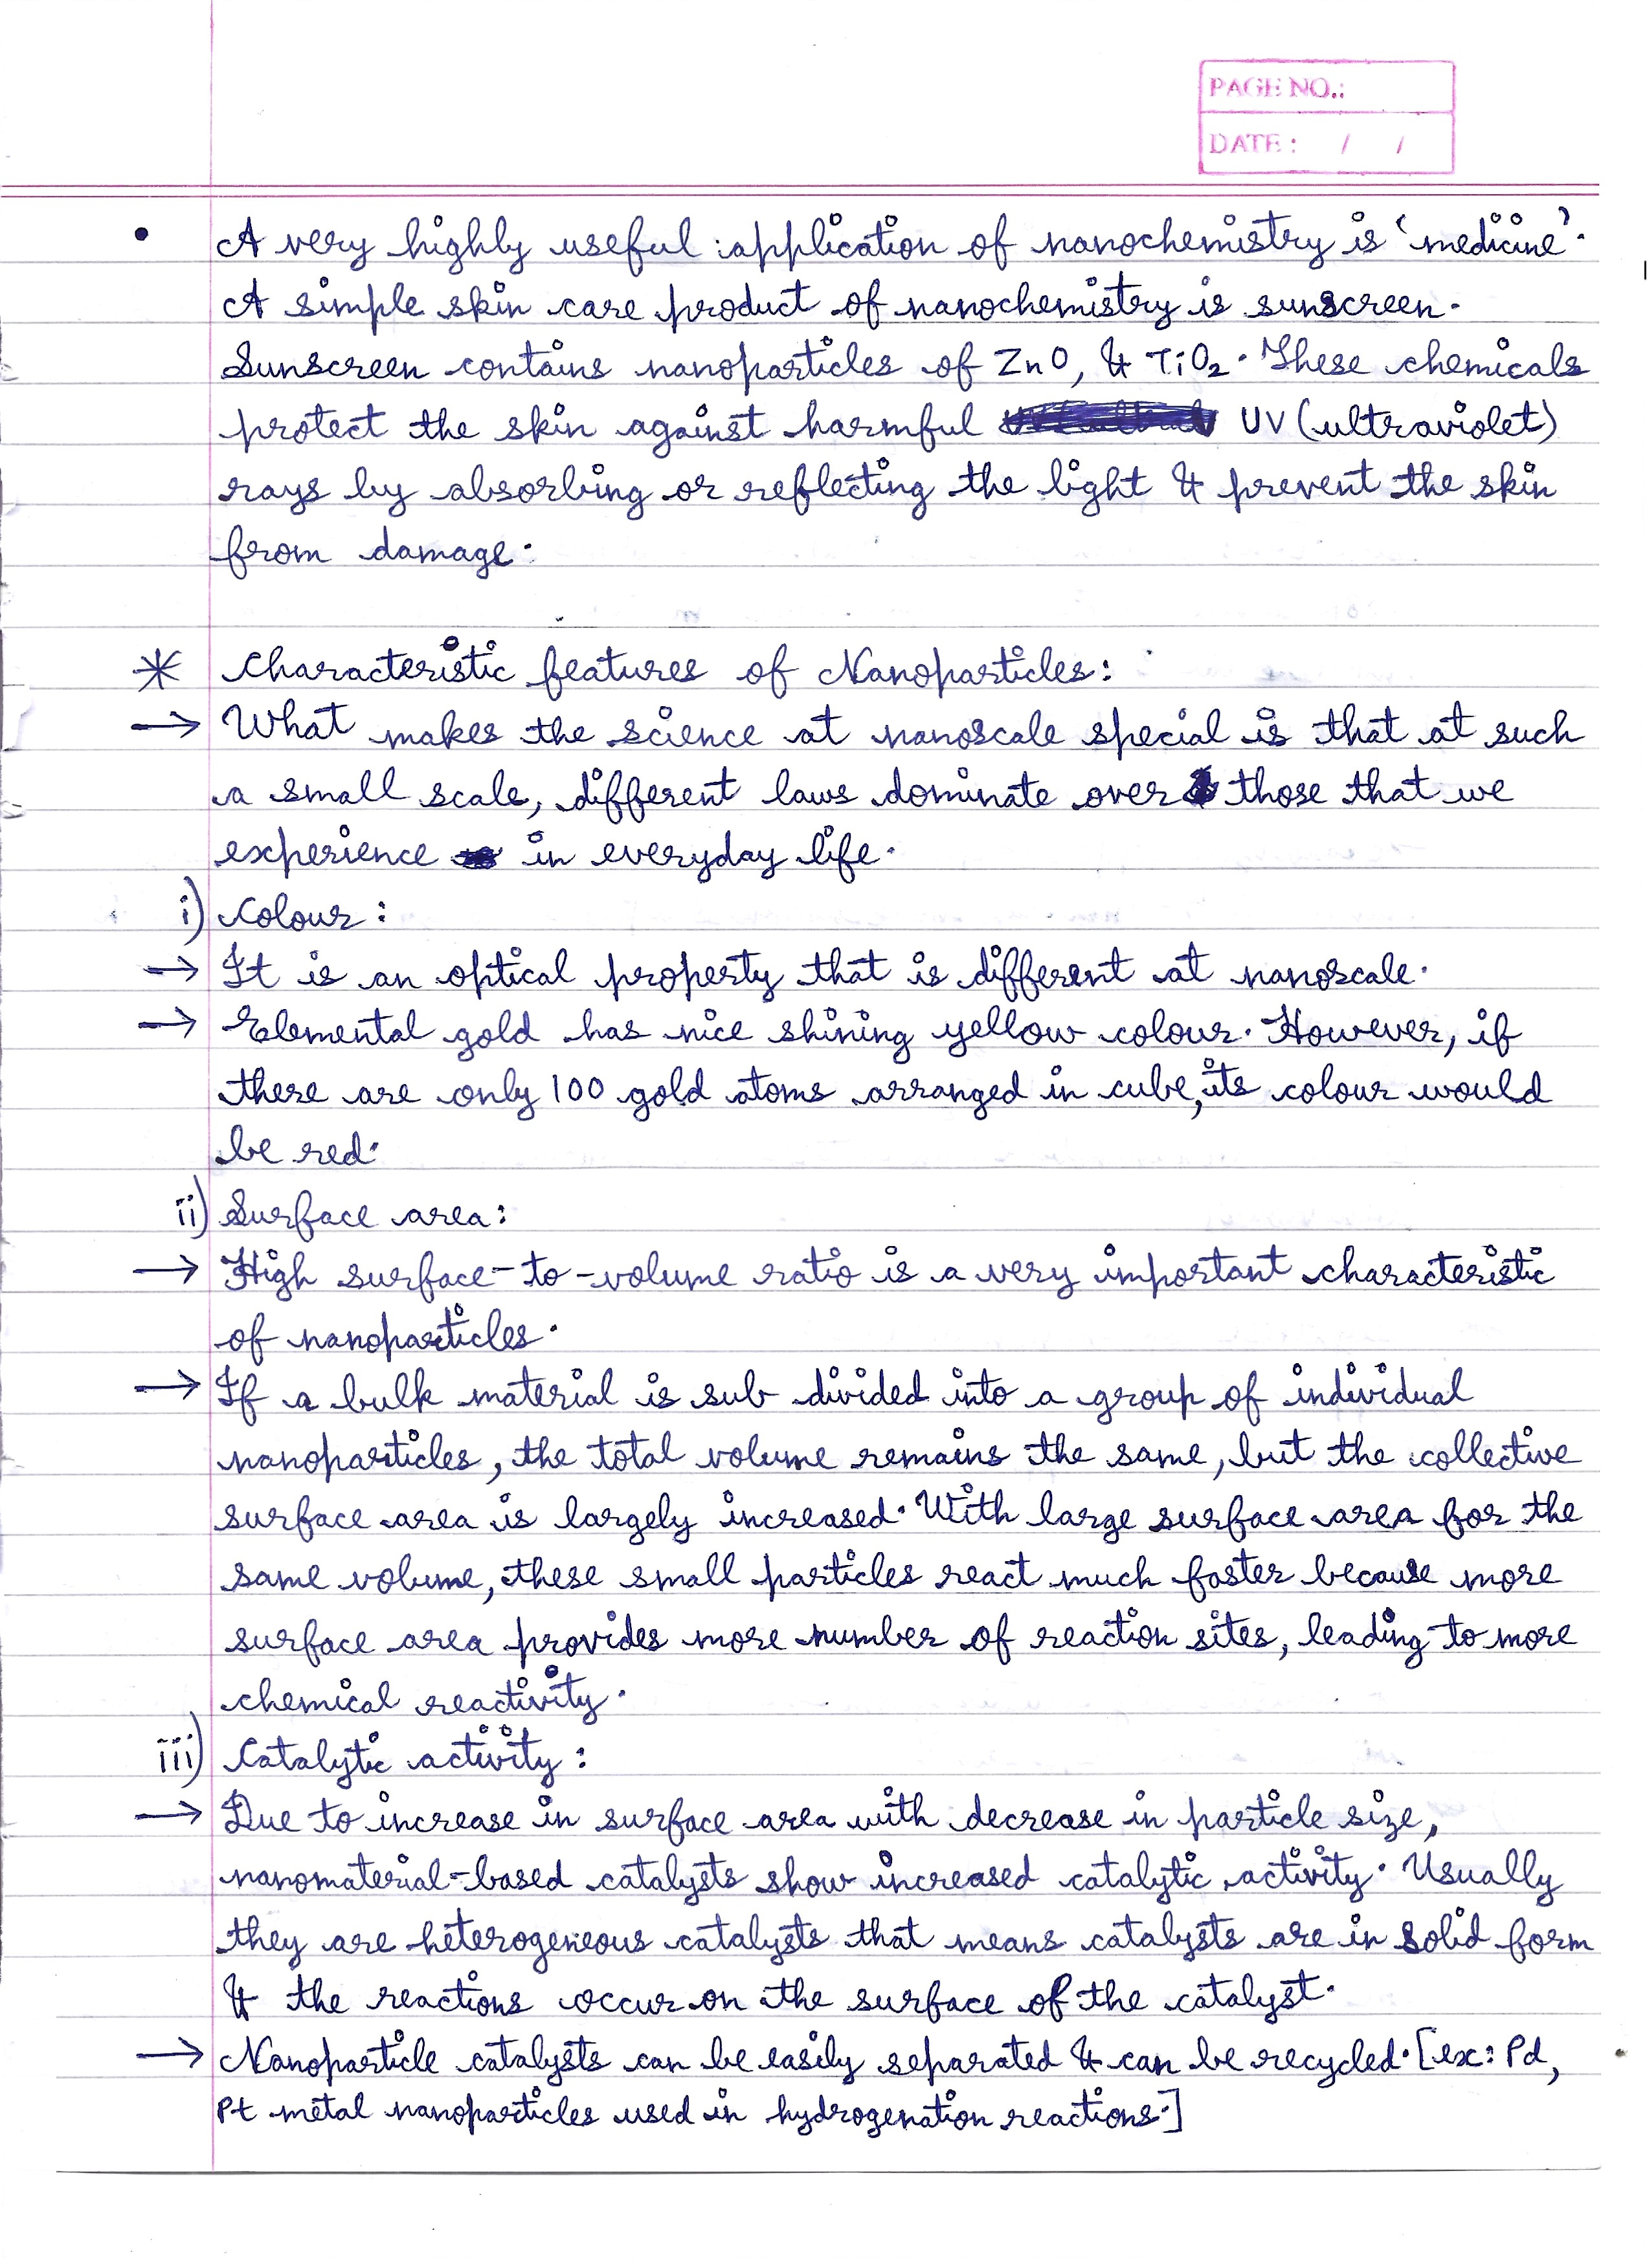 PAGE NO.:
DATE : / /
• A very highly useful application of nanochemistry is 'medicine'.
A simple skin care product of nanochemistry is sunscreen.
Sunscreen contains nanoparticles of ZnO, & TiO₂. These chemicals
protect the skin against harmful UV (ultraviolet)
rays by absorbing or reflecting the light & prevent the skin
from damage.
* Characteristic features of Nanoparticles:
→ What makes the science at nanoscale special is that at such
a small scale, different laws dominate over those that we
experience in everyday life.
i) Colour:
→ It is an optical property that is different at nanoscale.
→ Elemental gold has nice shining yellow colour. However, if
there are only 100 gold atoms arranged in cube, its colour would
be red.
ii) Surface area:
→ High surface-to-volume ratio is a very important characteristic
of nanoparticles.
→ If a bulk material is sub divided into a group of individual
nanoparticles, the total volume remains the same, but the collective
surface area is largely increased. With large surface area for the
same volume, these small particles react much faster because more
surface area provides more number of reaction sites, leading to more
chemical reactivity.
iii) Catalytic activity:
→ Due to increase in surface area with decrease in particle size,
nanomaterial-based catalysts show increased catalytic activity. Usually
they are heterogeneous catalysts that means catalysts are in solid form
& the reactions occur on the surface of the catalyst.
→ Nanoparticle catalysts can be easily separated & can be recycled. [ex: Pd,
Pt metal nanoparticles used in hydrogenation reactions.]